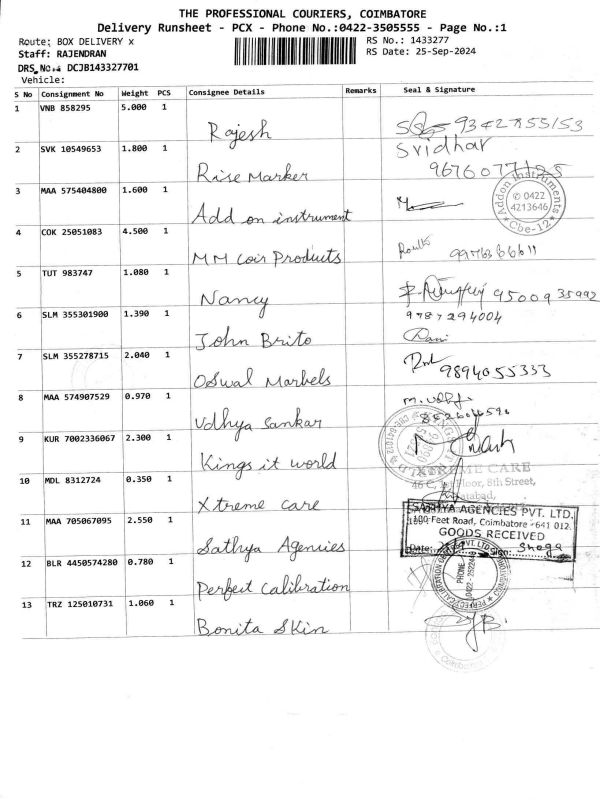 THE PROFESSIONAL COURIERS, COIMBATORE
Delivery Runsheet - PCX - Phone No.:0422-3505555 - Page No.:1
Route: BOX DELIVERY x RS No.: 1433277
Staff: RAJENDRAN RS Date: 25-Sep-2024
DRS No.: DCJB143327701
Vehicle:
S No Consignment No Weight PCS Consignee Details Remarks Seal & Signature
1 VNB 858295 5.000 1 Rajesh
2 SVK 10549653 1.800 1 Rise Marker Sridhar
3 MAA 575404800 1.600 1 Add on instrument Addon Instruments 0422 4213646 Cbe-12
4 COK 25051083 4.500 1 MM Coir Products
5 TUT 983747 1.080 1 Nancy 95009 35992
6 SLM 355301900 1.390 1 John Brito 9787294004
7 SLM 355278715 2.040 1 Oswal Marbels 9894055333
8 MAA 574907529 0.970 1 Udhya Sankar
9 KUR 7002336067 2.300 1 Kings it world
XTREME CARE
Floor, 8th Street,
10 MDL 8312724 0.350 1 Xtreme care
SATHYA AGENCIES PVT. LTD.
Feet Road, Coimbatore - 641 012.
GOODS RECEIVED
Date: Sign:
11 MAA 705067095 2.550 1 Sathya Agencies
12 BLR 4450574280 0.780 1 Perfect Calibration
13 TRZ 125010731 1.060 1 Bonita Skin